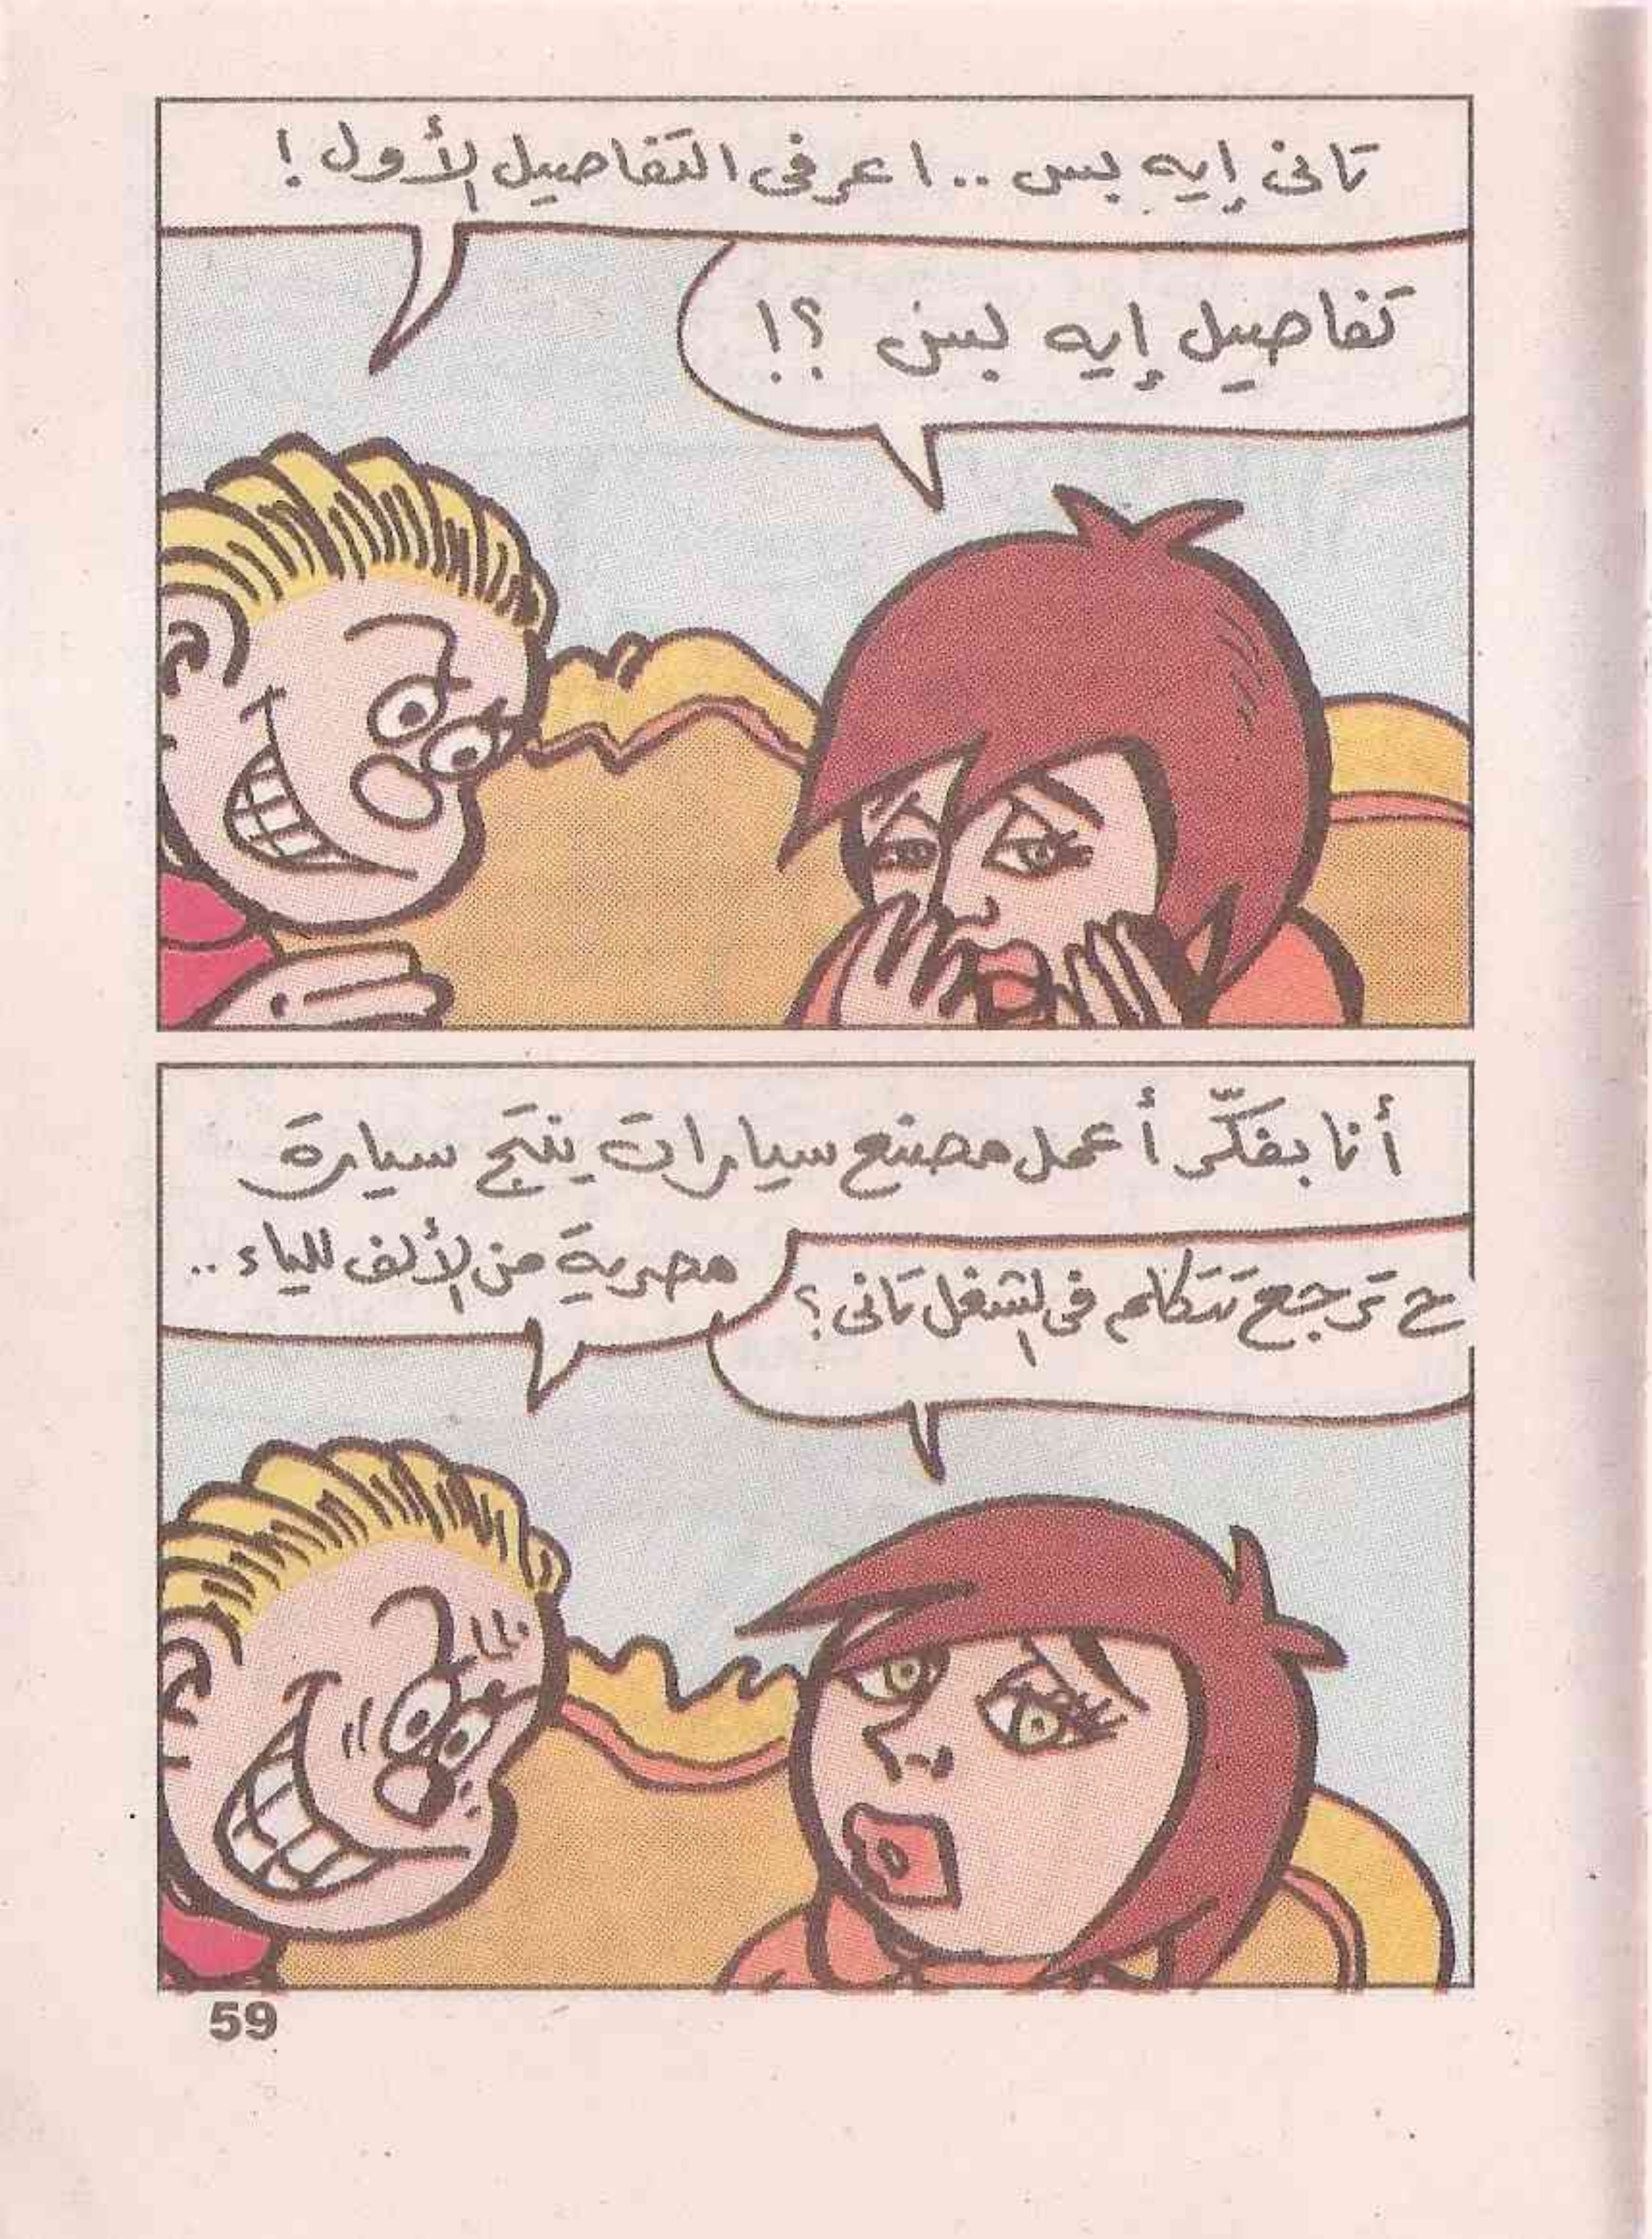 تانى إيه بس .. اعرفى التفاصيل الأول !
تفاصيل إيه بس ؟!
أنا بفكّر أعمل مصنع سيارات ينتج سيارة
مصرية من الألف للياء ..
ح ترجع تتكلم فى الشغل تانى ؟
59